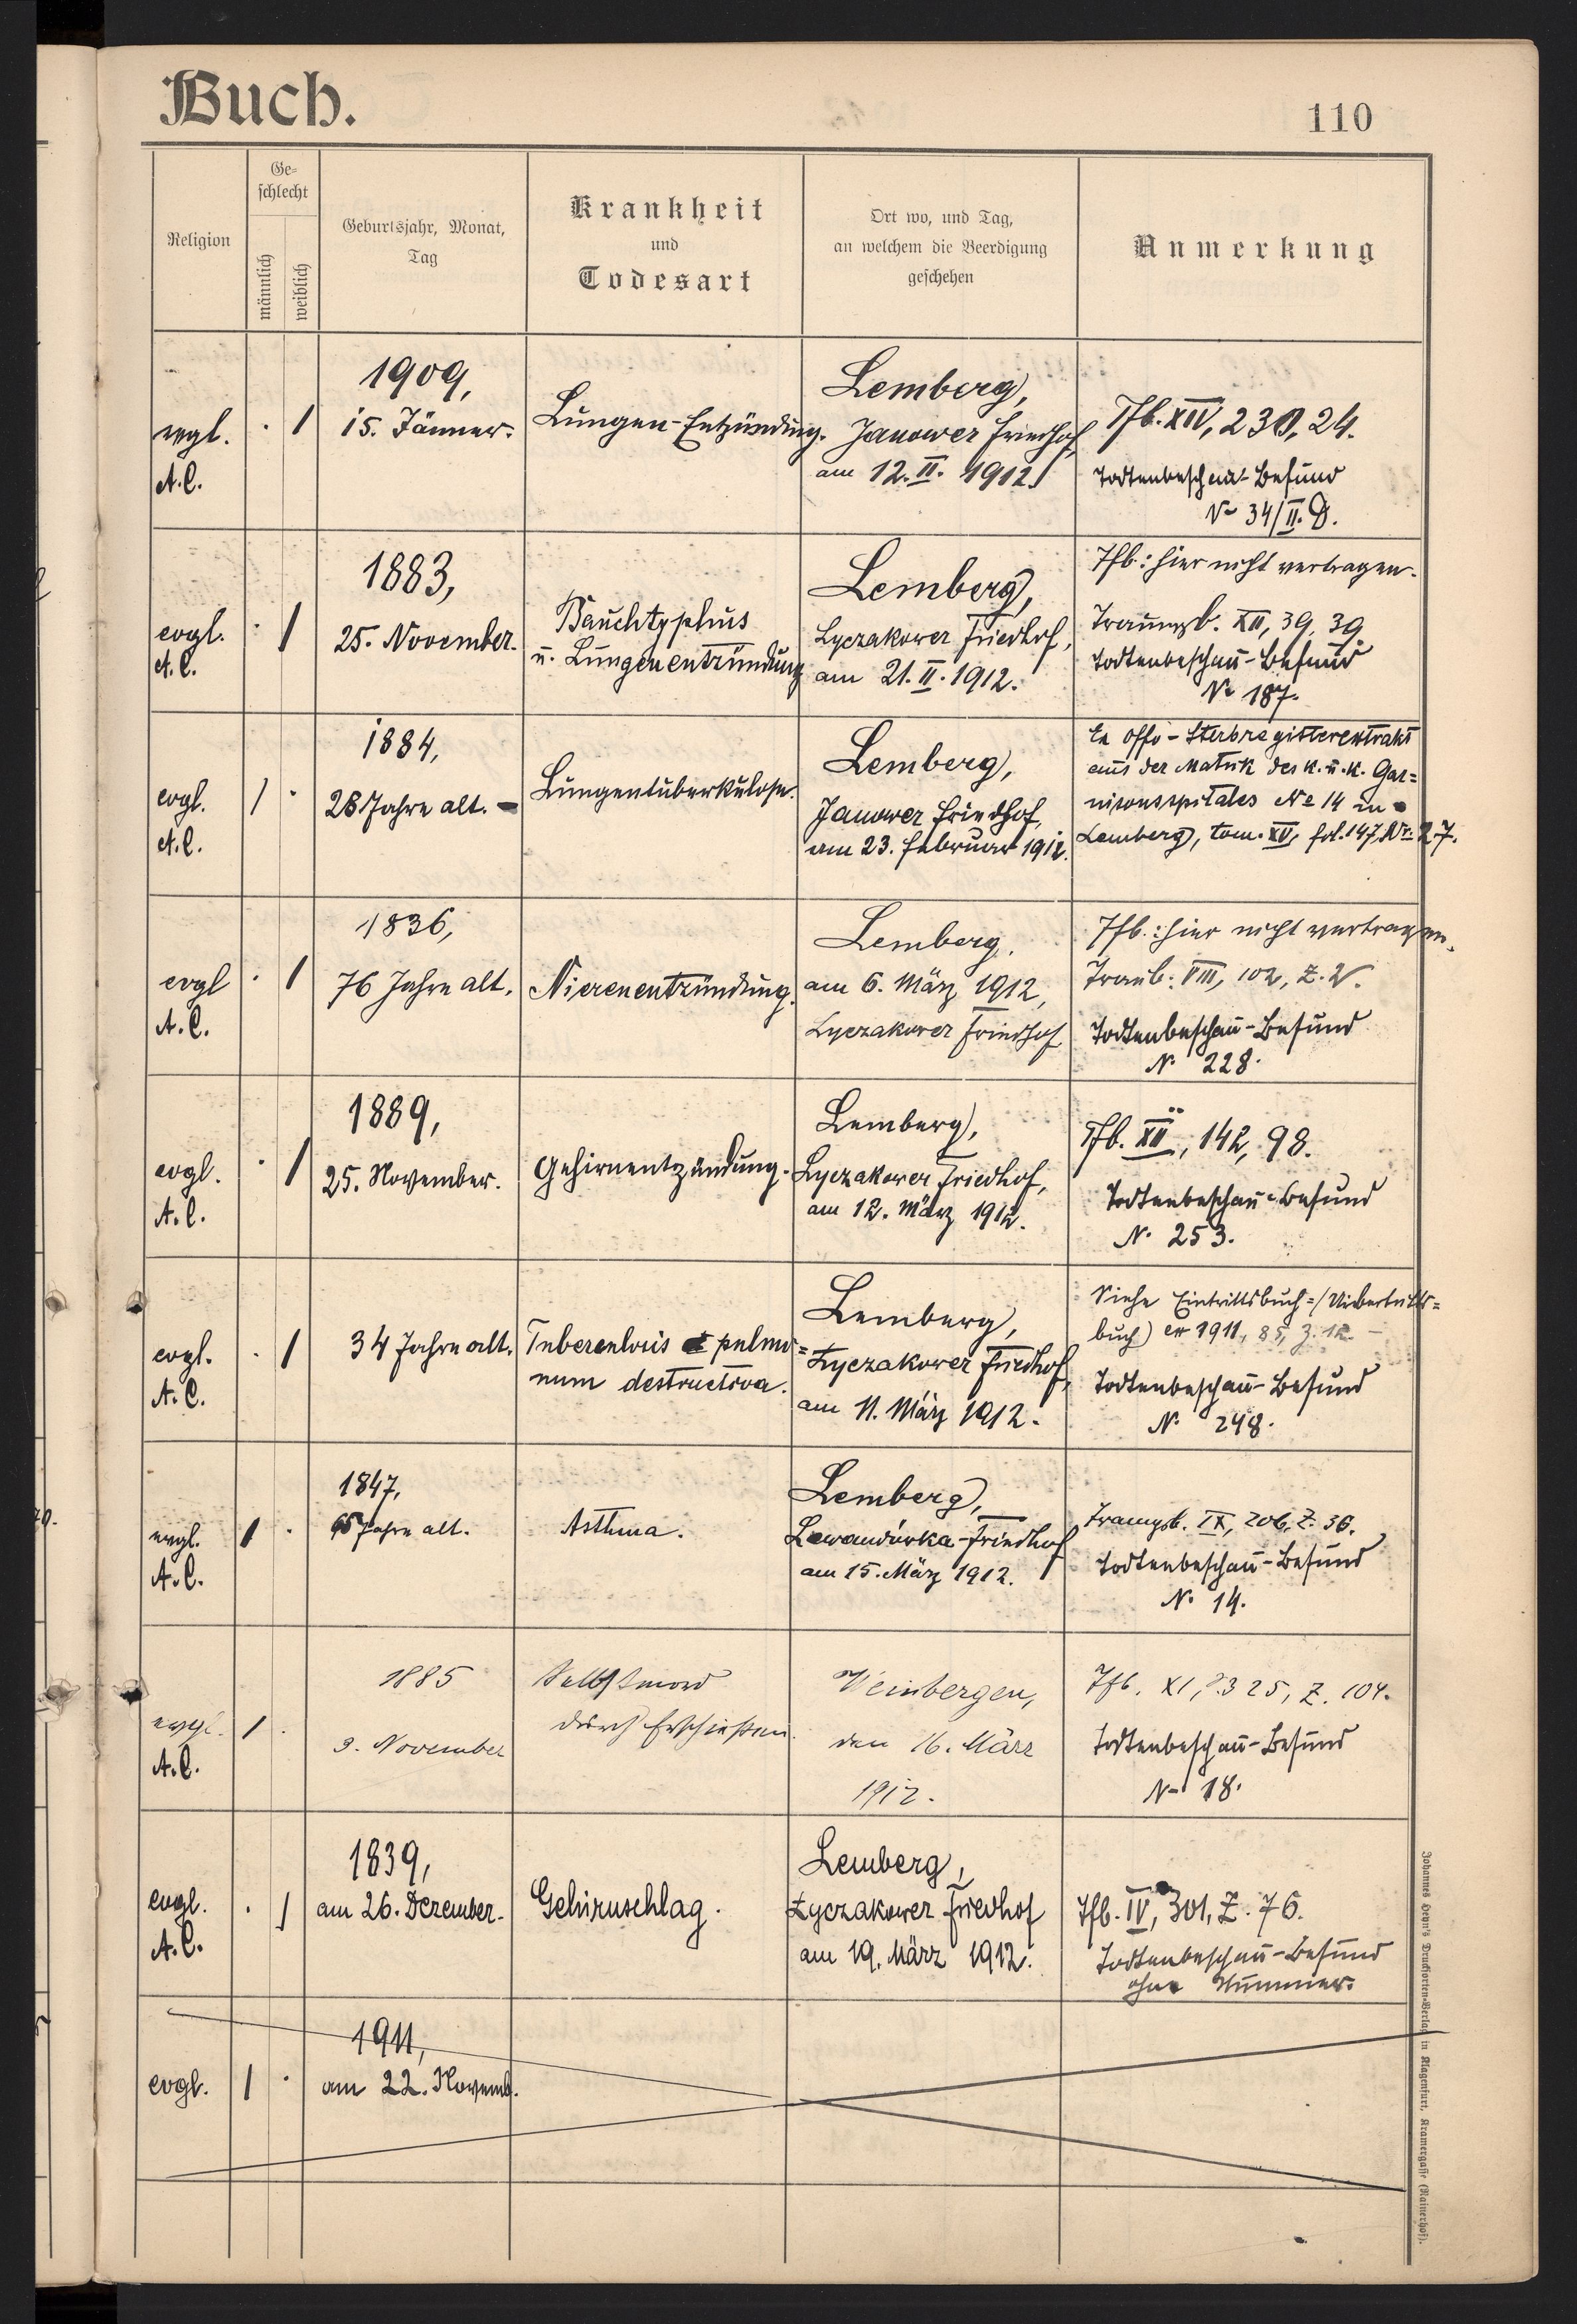 Buch.
110
Religion
Ge-
schlecht
männlich
weiblich
Geburtsjahr, Monat,
Tag
Krankheit
und
Todesart
Ort wo, und Tag,
an welchem die Beerdigung
geschehen
Anmerkung
evgl.
A.C.
. 1
1909,
15. Jänner.
Lungen-Entzündung.
Lemberg,
Janower Friedhof,
am 12. II. 1912.
Tfb. XIV, 230, 24.
Todtenbeschau-Befund
No 34/II. D.
evgl.
A.C.
. 1
1883,
25. November.
Bauchtyphus
u. Lungenentzündung
Lemberg,
Lyczakower Friedhof,
am 21. II. 1912.
Tfb.: hier nicht vertragen.
Trauungsb. XII, 39, 39.
Todtenbeschau-Befund
No 187.
evgl.
A.C.
1 .
1884,
28 Jahre alt.
Lungentuberkulose.
Lemberg,
Janower Friedhof,
am 23. Februar 1912.
Ex offo-Sterbregisterextrakt
aus der Matrik des k. u. k. Gar=
nisonsspitales No 14 in
Lemberg, tom. XV, fol. 147, Nr. 27.
evgl
A.C.
. 1
1836,
76 Jahre alt.
Nierenentzündung.
Lemberg,
am 6. März 1912,
Lyczakower Friedhof
Tfb.: hier nicht vertragen.
Traub: VIII, 102, Z. 2.
Todtenbeschau-Befund
N. 228.
evgl.
A.C.
. 1
1889,
25. November.
Gehirnentzündung.
Lemberg,
Lyczakower Friedhof,
am 12. März 1912.
Tfb. XII, 142, 98.
Todtenbeschau-Befund
N. 253.
evgl.
A.C.
. 1
34 Jahre alt.
Tuberculosis pulmo=
num destructiva.
Lemberg,
Łyczakower Friedhof,
am 11. März 1912.
Siehe Eintrittsbuch=(Uibertritts=
buch) 1911, 85, Z. 12.
Todtenbeschau-Befund
N. 248.
evgl.
A.C.
1 .
1847,
65 Jahre alt.
Asthma.
Lemberg,
Lewandówka-Friedhof
am 15. März 1912.
Traungsb. IX, 206, Z. 36.
Todtenbeschau-Befund
N. 14.
evgl.
A.C.
1 .
1885
3. November
Selbstmord
durch Erschießen.
Weinbergen,
den 16. März
1912.
Tfb. XI, 325, Z. 104.
Todtenbeschau-Befund
N. 18.
evgl.
A.C.
. 1
1839,
am 26. Dezember.
Gehirnschlag.
Lemberg,
Łyczakower Friedhof
am 19. März 1912.
Tfb. IV, 301, Z. 76.
Todtenbeschau-Befund
ohne Nummer.
evgl.
1 .
1911,
am 22. Novemb.
Johannes Heyn's Drucksorten-Verlag in Klagenfurt, Kramergasse (Rainerhof).